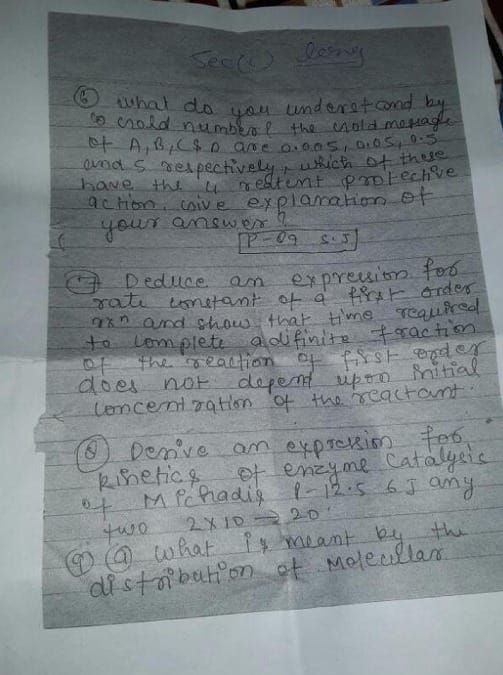 Sec(C) long
⑥ what do you understand by
gold number? the gold message
of A, B, C & D are 0.005, 0.05, 0.5
and 5 respectively, which of these
have the protective
action. Give explanation of
your answer?
P-09 S.J
⑦ Deduce an expression for
rate constant of a first order
rxn and show that time required
to complete a difinite fraction
of the reaction of first order
does not depend upon initial
concentration of the reactant.
⑧ Derive an expression for
kinetics of enzyme catalysis
of P-12.5 any
two 2x10 → 20
⑨ ⓐ what is meant by the
distribution of Molecular